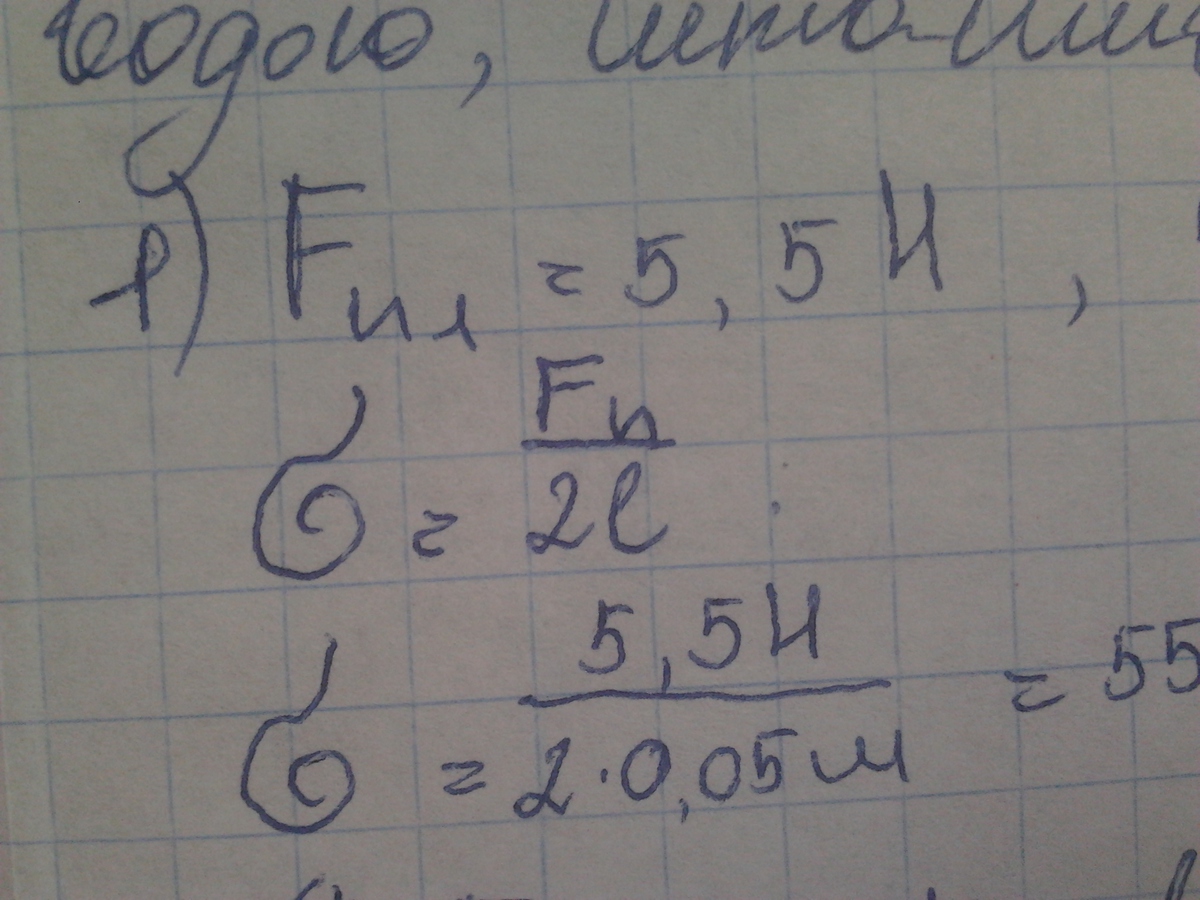 водою,
1) Fпл = 5,5 Н ,
σ = Fп / 2l
σ = 5,5Н / 2·0,05м = 55